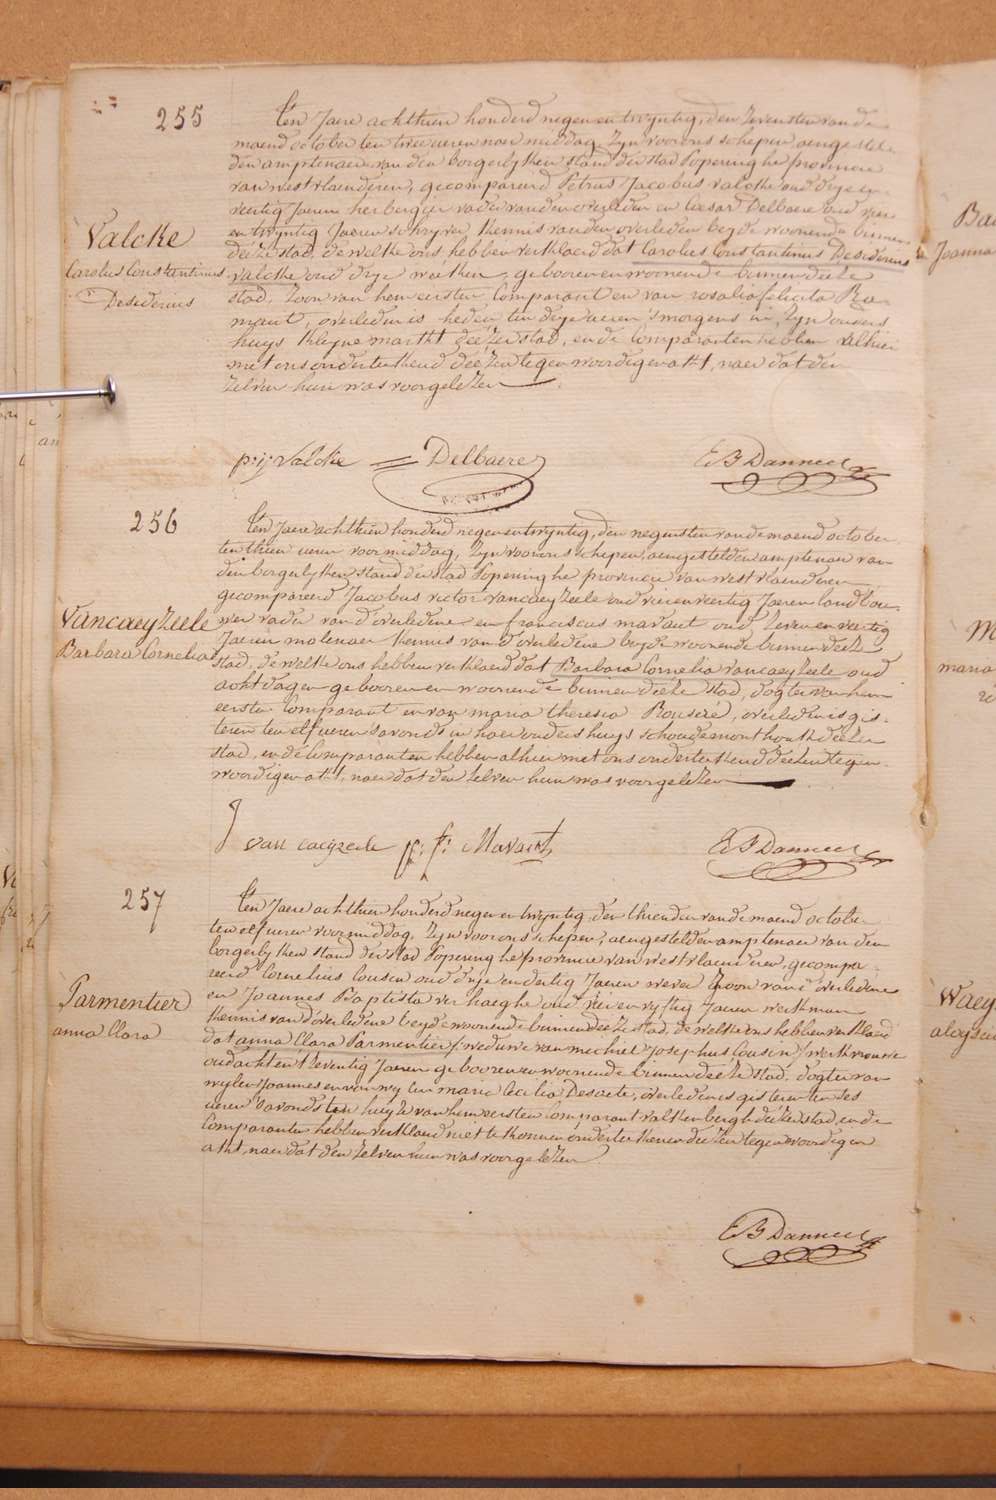 255
Ten Jaere achthien honderd negenentwyntig, den Zevensten van de
maend october ten twee ueren naer middag, Zyn voor ons schepen, aengestelde
den amptenaer van den borgerlyken stand der stad Poperinghe provincie
van westvlaenderen, gecompareerd Petrus Jacobus valcke oud dryen-
veertig Jaeren herbergier vader van den overleden en Cæsar Delbaere oud
en twyntig Jaeren schryver, kennis van den overleden beyde woonende binnen
deéze stad, de welke ons hebben verklaerd dat Carolus Constantinus Desiderius
Valcke
Carolus Constantinus
Desiderius
valcke oud drye weeken, gebooren en woonende binnen deeze
stad, Zoon van hem eersten Comparant en van rosalia felicita Ra-
maut, overleden is heden ten drye ueren 's morgens in Zyn ouders
huys kleyne markt deéze stad, en de Comparanten hebben alhier
met ons onderteekend deézen tegenwoordigen akt, naer dat den
zelven hun was voorgelezen
p:j: Valcke Delbaere EB Danneel
256
Ten Jaere achthien honderd negenentwyntig, den negensten van de maend october
ten thien ueren voormiddag, Zyn voor ons schepen, aengestelden amptenaer van
den borgerlyken stand der stad Poperinghe provincie van westvlaenderen
gecompareerd Jacobus victor vancaeyzeele oud vierenveertig Jaeren landbou-
wer vader van d'overledene en franciscus maraut oud zevenenveertig
Vancaeyzeele
Barbara Cornelia
Jaeren molenaer kennis van d'overledene beyde woonende binnen deeze
stad, de welke ons hebben verklaerd dat Barbara Cornelia vancaeyzeele oud
acht dagen gebooren en woonende binnen deeze stad, dogter van hem
eersten Comparant en van maria theresia Rouseré, overleden is gis-
teren ten elf ueren s'avonds in haer ouders huys schoudemonthouk deézen
stad, en de Comparanten hebben alhier met ons onderteekend deézen tegen-
woordigen akt, naer dat den zelven hun was voorgelezen
J van caeyzeele p: f: Maraut EB Danneel
257
Ten Jaere achthien honderd negenentwyntig, den thienden van de maend october
ten elf ueren voormiddag, Zyn voor ons schepen, aengestelden amptenaer van den
borgerlyken stand der stad Poperinghe provincie van westvlaenderen, gecompa-
reerd Cornelius Cousin oud dryendertig Jaeren wever Zoon van d'overledene
Parmentier
anna Clara
en Joannes Baptista verhaeghe oud vierenvyftig Jaeren werkman
kennis van d'overledene beyde woonende binnen deéze stad, de welke ons hebben verklaerd
dat anna Clara Parmentier (weduwe van michiel Josephus Cousin) werkvrouwe
oud achtentzeventig Jaeren gebooren en woonende binnen deeze stad, dogter van
wylen Joannes en van wylen maria Cecilia Desaete, overleden is gisteren ten zes
ueren s'avonds ten huyze van hem eersten Comparant valkenbergh deéze stad, en de
Comparanten hebben verklaerd niet te konnen onderteekenen deézen tegenwoordigen
akt, naer dat den zelven hun was voorgelezen
EB Danneel
Joanna
maria
Waey
aloysius